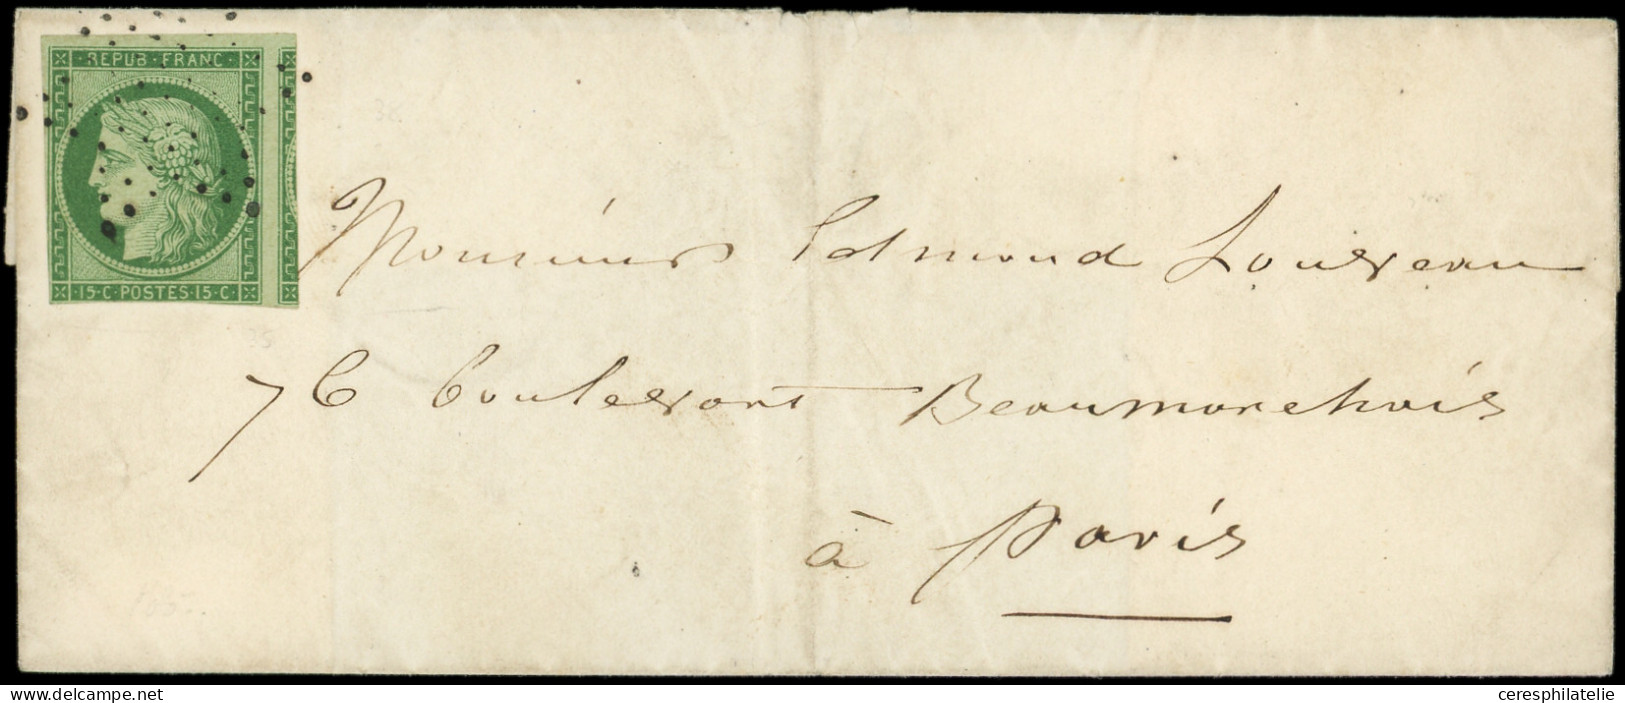 REPUB · FRANC ·
· 15 · C · POSTES · 15 · C ·
38
Monsieur Edmond Louveau
35
76 boulevart Beaumarchais
à Paris
105
www.delcampe.net
ceresphilatelie